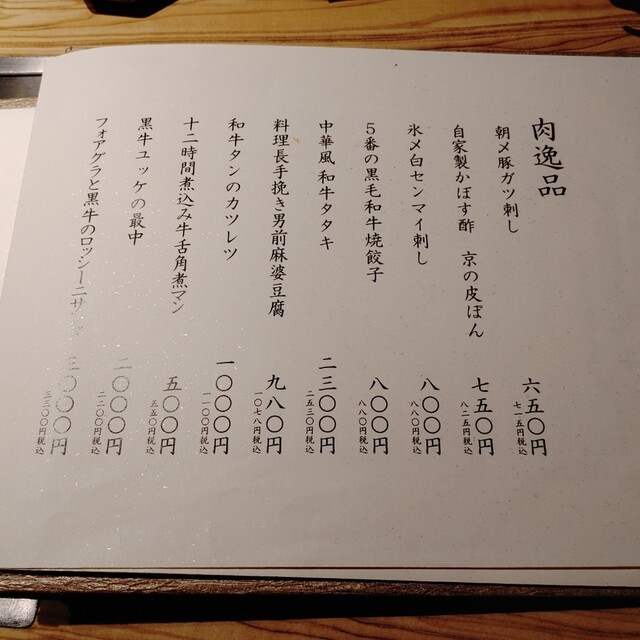 肉逸品
朝〆豚ガツ刺し
六五〇円
七一五円税込
自家製かぼす酢 京の皮ぽん
七五〇円
八二五円税込
氷〆白センマイ刺し
八〇〇円
八八〇円税込
5番の黒毛和牛焼餃子
八〇〇円
八八〇円税込
中華風 和牛タタキ
二三〇〇円
二五三〇円税込
料理長手挽き男前麻婆豆腐
九八〇円
一〇七八円税込
和牛タンのカツレツ
一〇〇〇円
一一〇〇円税込
十二時間煮込み牛舌角煮マン
五〇〇円
五五〇円税込
黒牛ユッケの最中
二〇〇〇円
二二〇〇円税込
フォアグラと黒牛のロッシーニサンド
三〇〇〇円
三三〇〇円税込